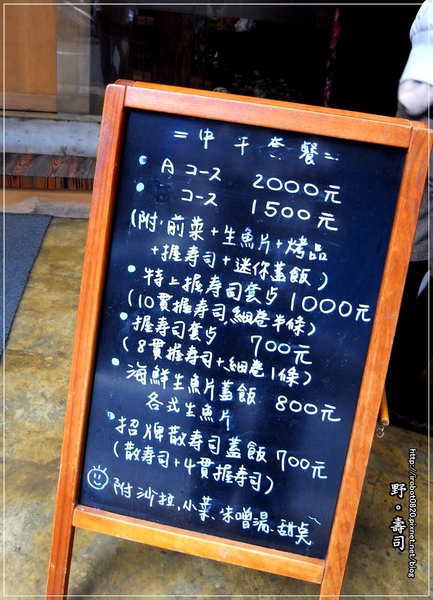 =中午套餐=
• A コース 2000元
• コース 1500元
(附.前菜+生魚片+烤品
+握壽司+迷你蓋飯)
• 特上握壽司套步 1000元
(10貫握壽司.細卷半條)
• 握壽司套步 700元
(8貫握壽司+細卷1條)
• 海鮮生魚片蓋飯 800元
各式生魚片
• 招牌散壽司蓋飯 700元
(散壽司+4貫握壽司)
附沙拉.小菜.味噌湯.甜桌
野。壽司
http://irobot0820.pixnet.net/blog